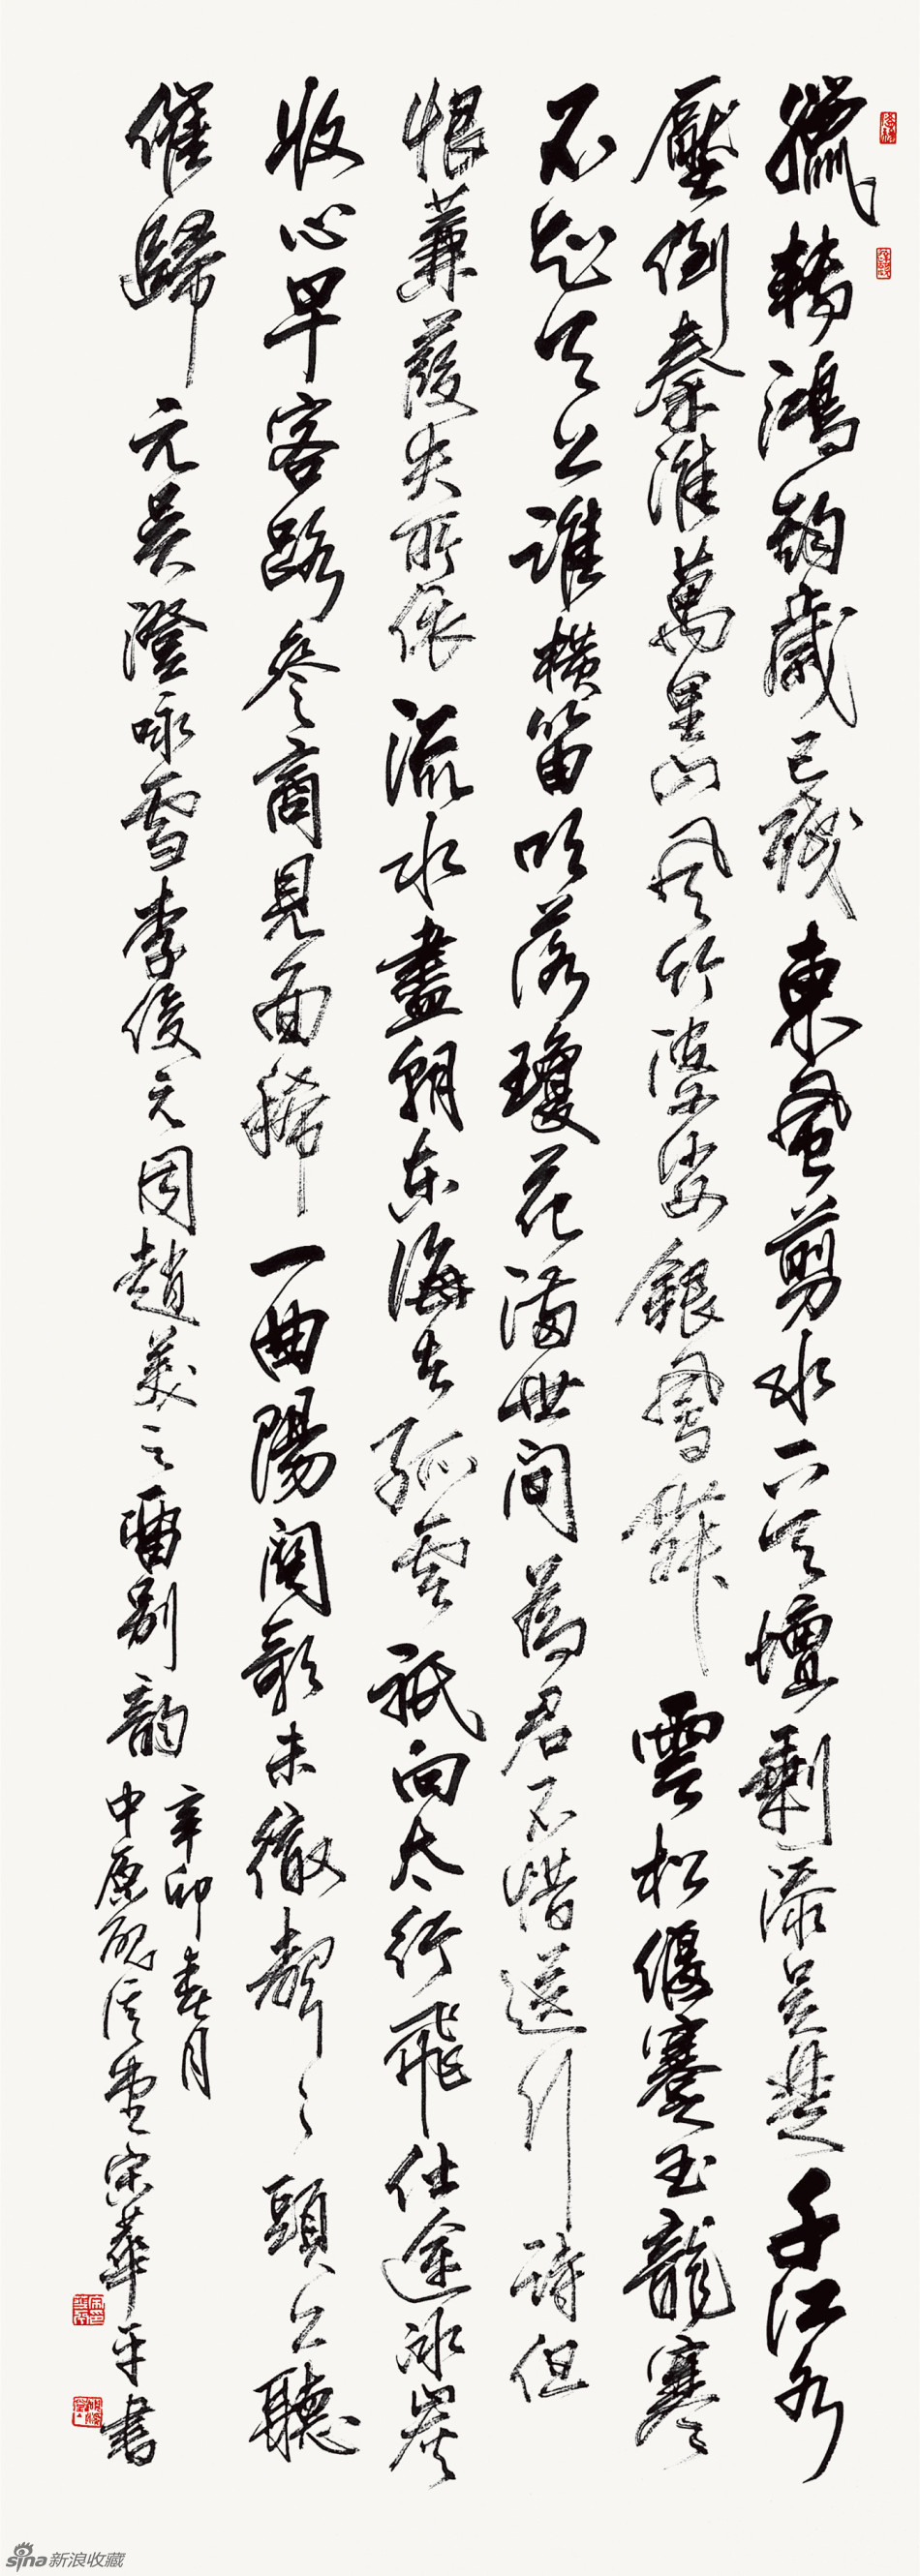 臘轉鴻鈞歲已殘東風剪水下天壇剩添吳楚千江水
壓倒秦淮萬里山風竹婆娑銀鳳舞雲松偃蹇玉龍寒
不知天上誰橫笛吹落瓊花滿世間為君不惜送行詩但
恨蒹葭失所依流水盡朝東海去孤雲祗向太行飛仕途冰炭
收心早客路參商見面稀一曲陽關歌未徹聲聲頭上聽
催歸元吳澄咏雪李俊元趙美之留別韻
辛卯春月
中原堂宋華平書
sina新浪收藏